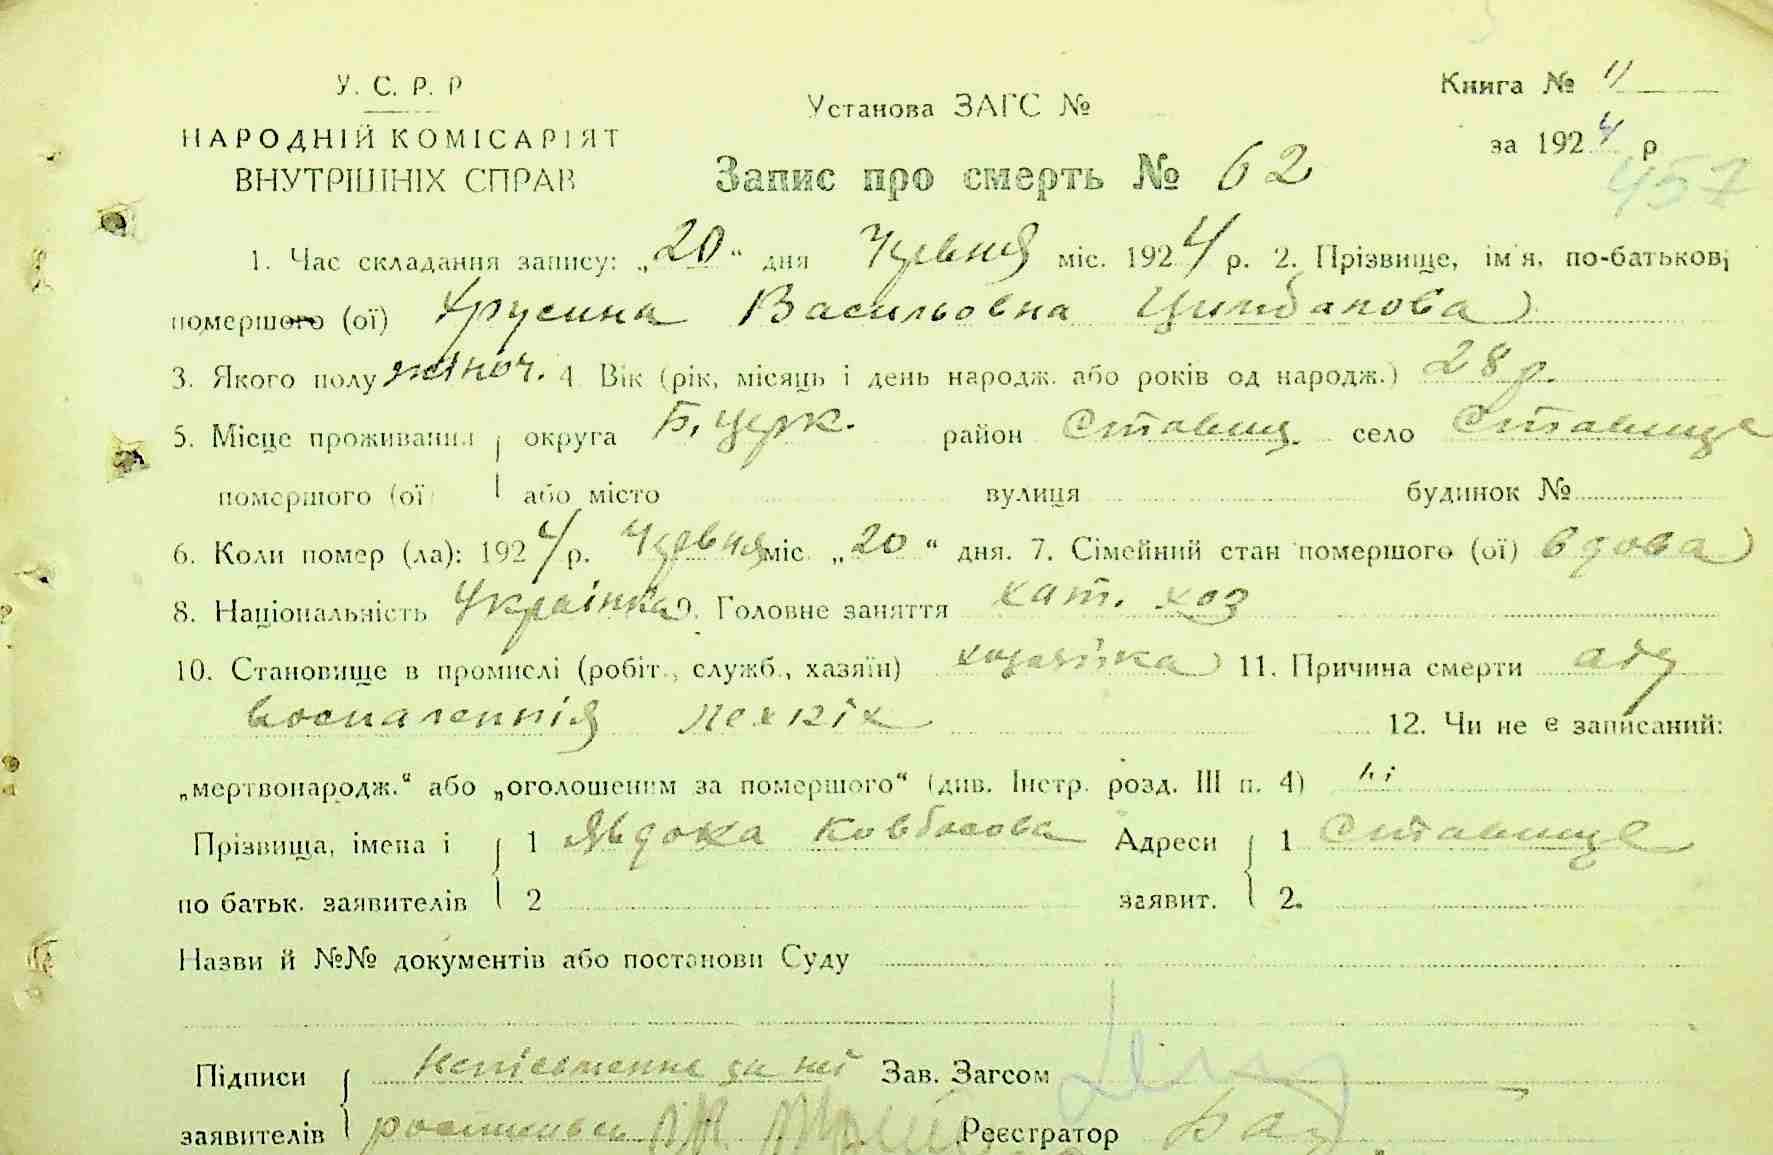 У. С. Р. Р
Установа ЗАГС №
Книга № 11
НАРОДНІЙ КОМІСАРІЯТ
за 1924 р
ВНУТРІШНІХ СПРАВ
Запис про смерть № 62
457
1. Час складання запису: „20“ дня Червня міс. 1924 р. 2. Прізвище, ім'я, по-батькові
помершого (ої) Хрусина Васильовна Цимбалова
3. Якого полу жіноч. 4 Вік (рік, місяць і день народж. або років од народж.) 28 р.
5. Місце проживання округа Б. Церк. район Ставищ. село Ставище
помершого (ої) або місто вулиця будинок №
6. Коли помер (ла): 1924 р. Червня міс „20“ дня. 7. Сімейний стан помершого (ої) вдова
8. Національність Українка 9. Головне заняття хат. хоз
10. Становище в промислі (робіт., служб., хазяїн) хозяйка 11. Причина смерти од
воспаленнія лехких 12. Чи не є записаний:
„мертвонародж.“ або „оголошеним за помершого“ (див. Інстр. розд. III п. 4) ні
Прізвища, імена і 1 Явдоха Ковбасова Адреси 1 Ставище
по батьк. заявителів 2 заявит. 2.
Назви й №№ документів або постанови Суду
Підписи Неписьменна за неї Зав. Загсом
заявителів росписався Реєстратор